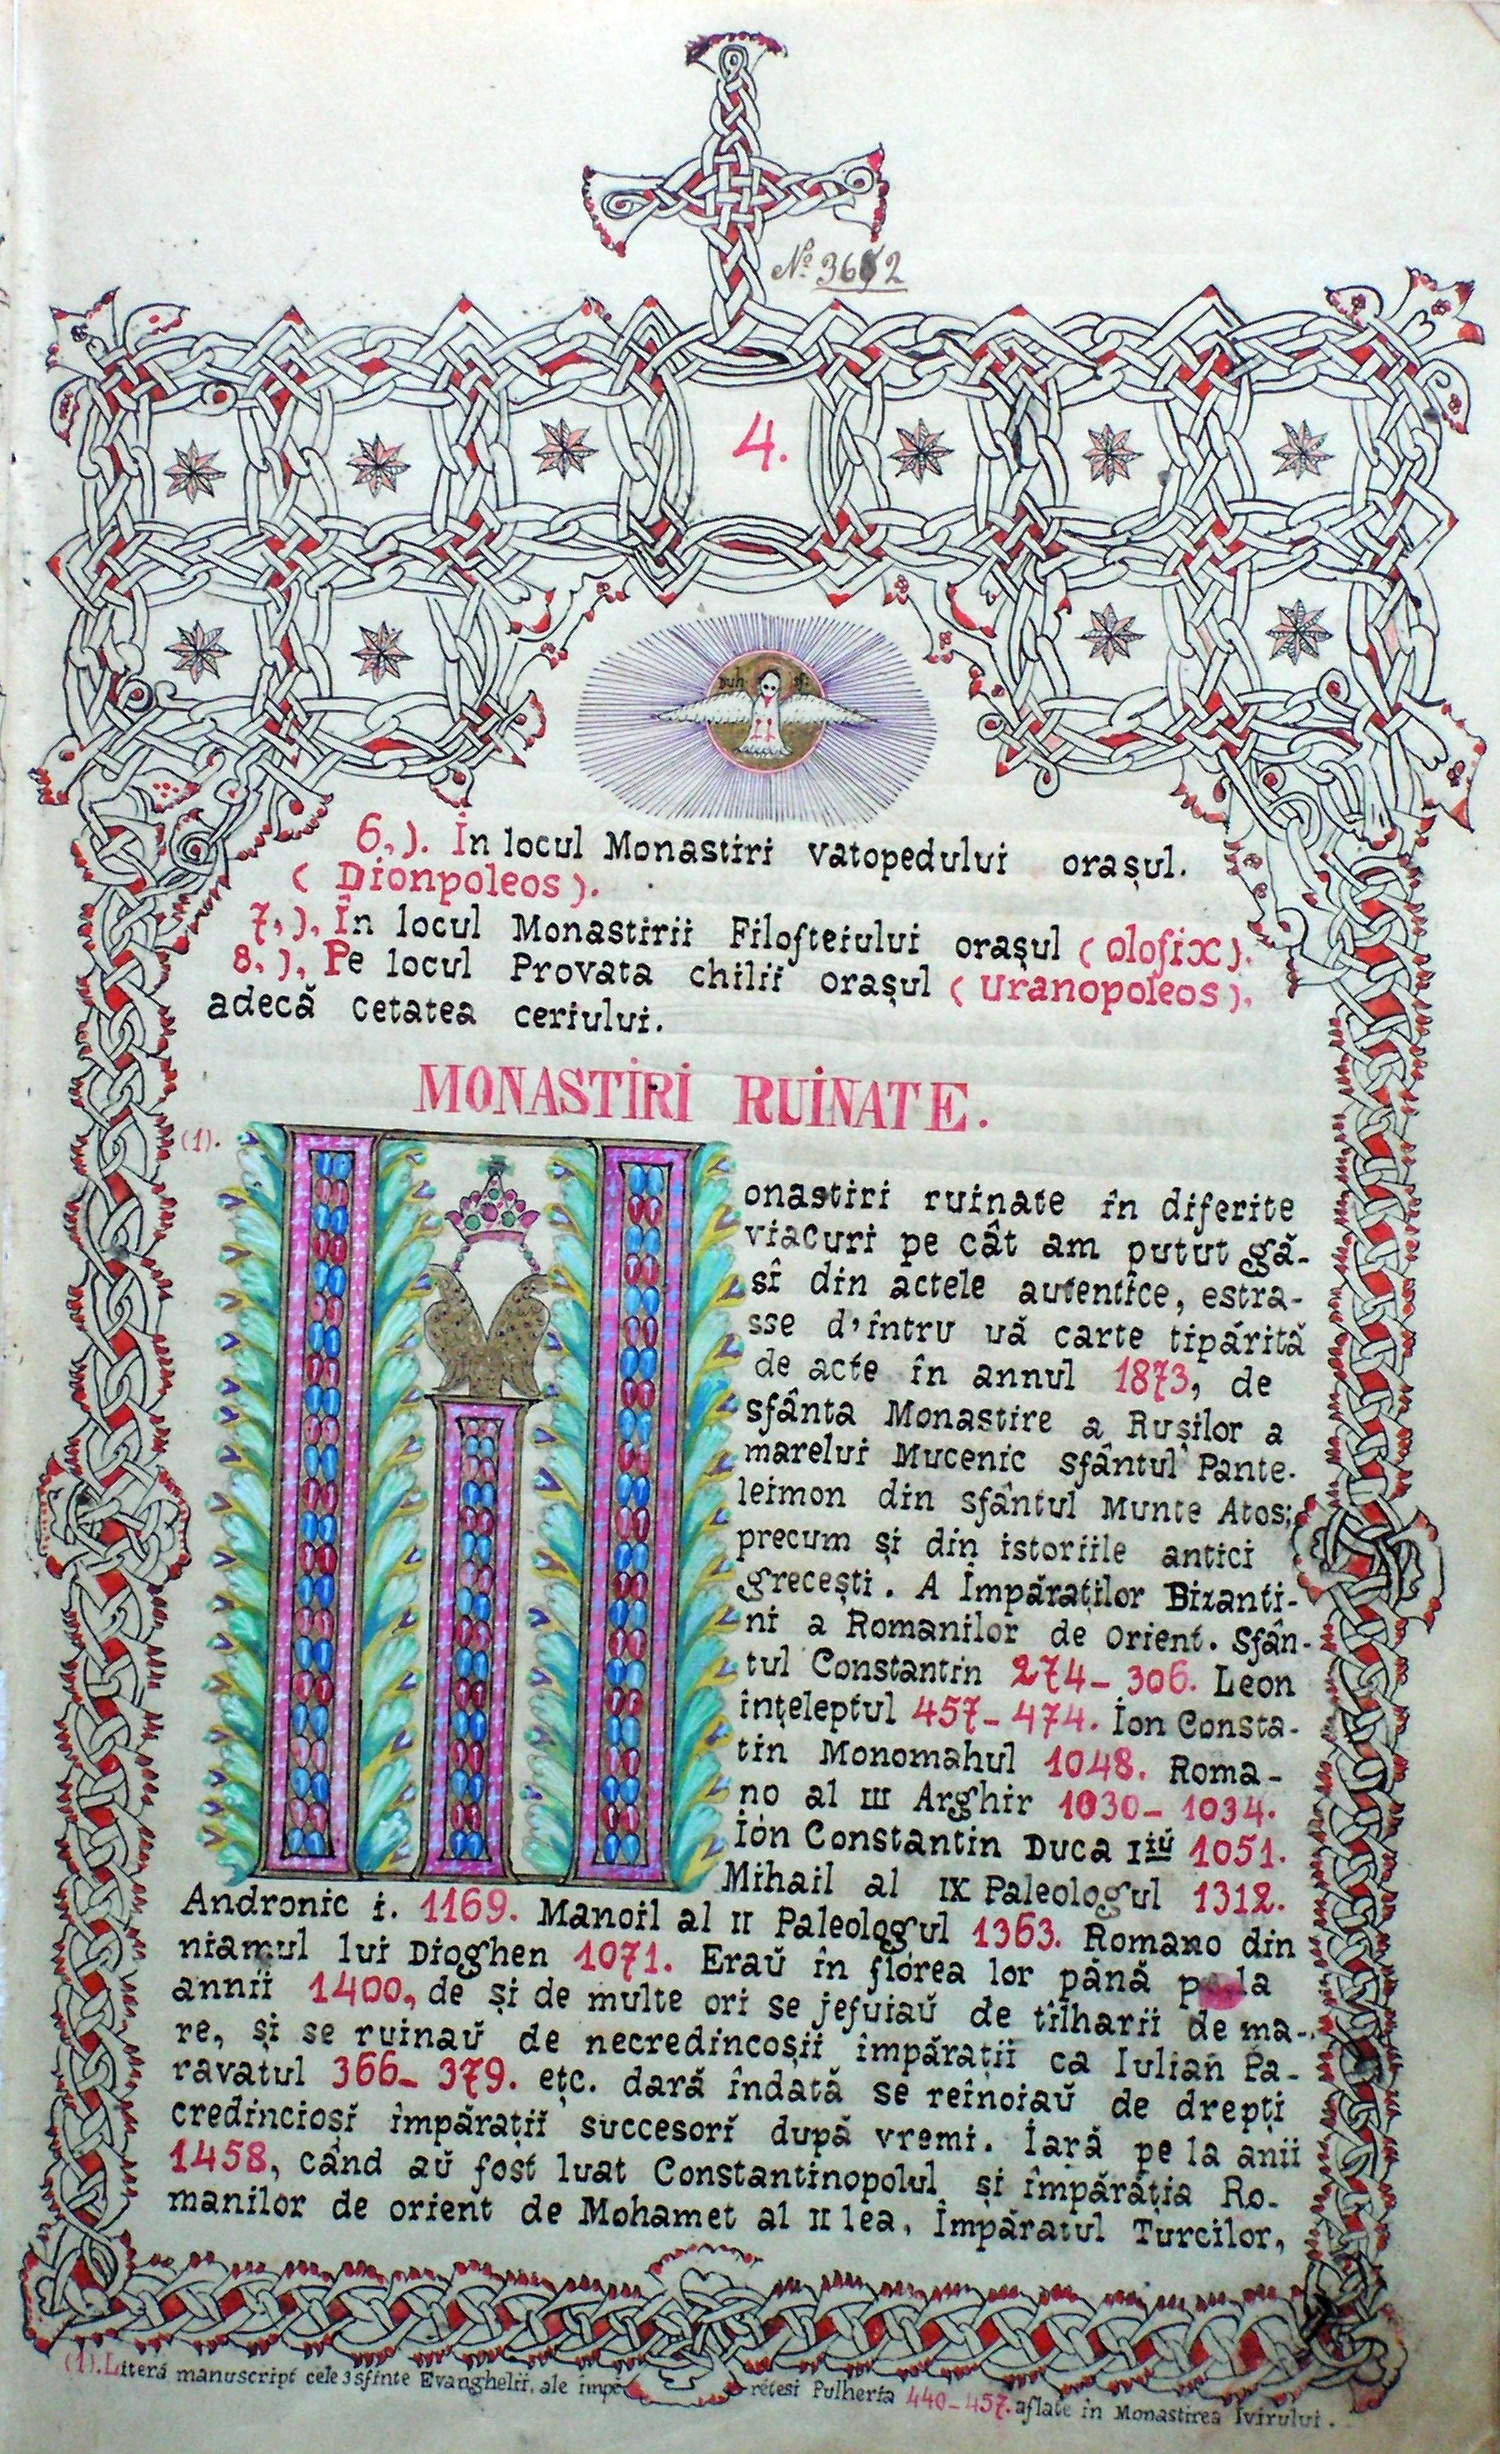 № 3652
4.
Duh sf:
6,). În locul Monastiri vatopedului orașul.
( Dionpoleos ).
7,), În locul Monastirii Filofteiului orașul ( olofix ).
8,), Pe locul Provata chilii orașul ( uranopoleos ),
adecă cetatea ceriului.
MONASTİRİ RUİNATE.
(1).
onastiri ruinate în diferite
viacuri pe cât am putut gă-
sî din actele autentice, estra-
sse d'întru uă carte tipărită
de acte în annul 1873, de
sfânta Monastire a Rușilor a
marelui Mucenic sfântul Pante-
leimon din sfântul Munte Atos;
precum și din istoriile antici
grecești. A Împăraților Bizanti-
ni a Romanilor de orient. Sfân-
tul Constantin 274- 306. Leon
înțeleptul 457- 474. İon Consta-
tin Monomahul 1048. Roma-
no al III Arghir 1030- 1034.
İón Constantin Duca Iiŭ 1051.
Mihail al IX Paleologul 1312.
Andronic i. 1169. Manoil al II Paleologul 1363. Romano din
niamul lui Dioghen 1071. Eraŭ în flórea lor până la
annii 1400, de și de multe ori se jefuiaŭ de tîlharii de ma-
re, și se ruinaŭ de necredincoșii împărații ca Iulian Pa-
ravatul 366- 379. ețc. dară îndată se reînoiaŭ de drepți
credincioșĭ împărațiĭ succesorĭ după vremi. İară pe la anii
1458, când aŭ fost luat Constantinopolul și împărăția Ro-
manilor de orient de Mohamet al II lea, Împăratul Turcilor,
(1). Literă manuscript cele 3 sfinte Evanghelii, ale împĕ-rétesi Pulheria 440-457. aflate în Monastirea Ivirului.